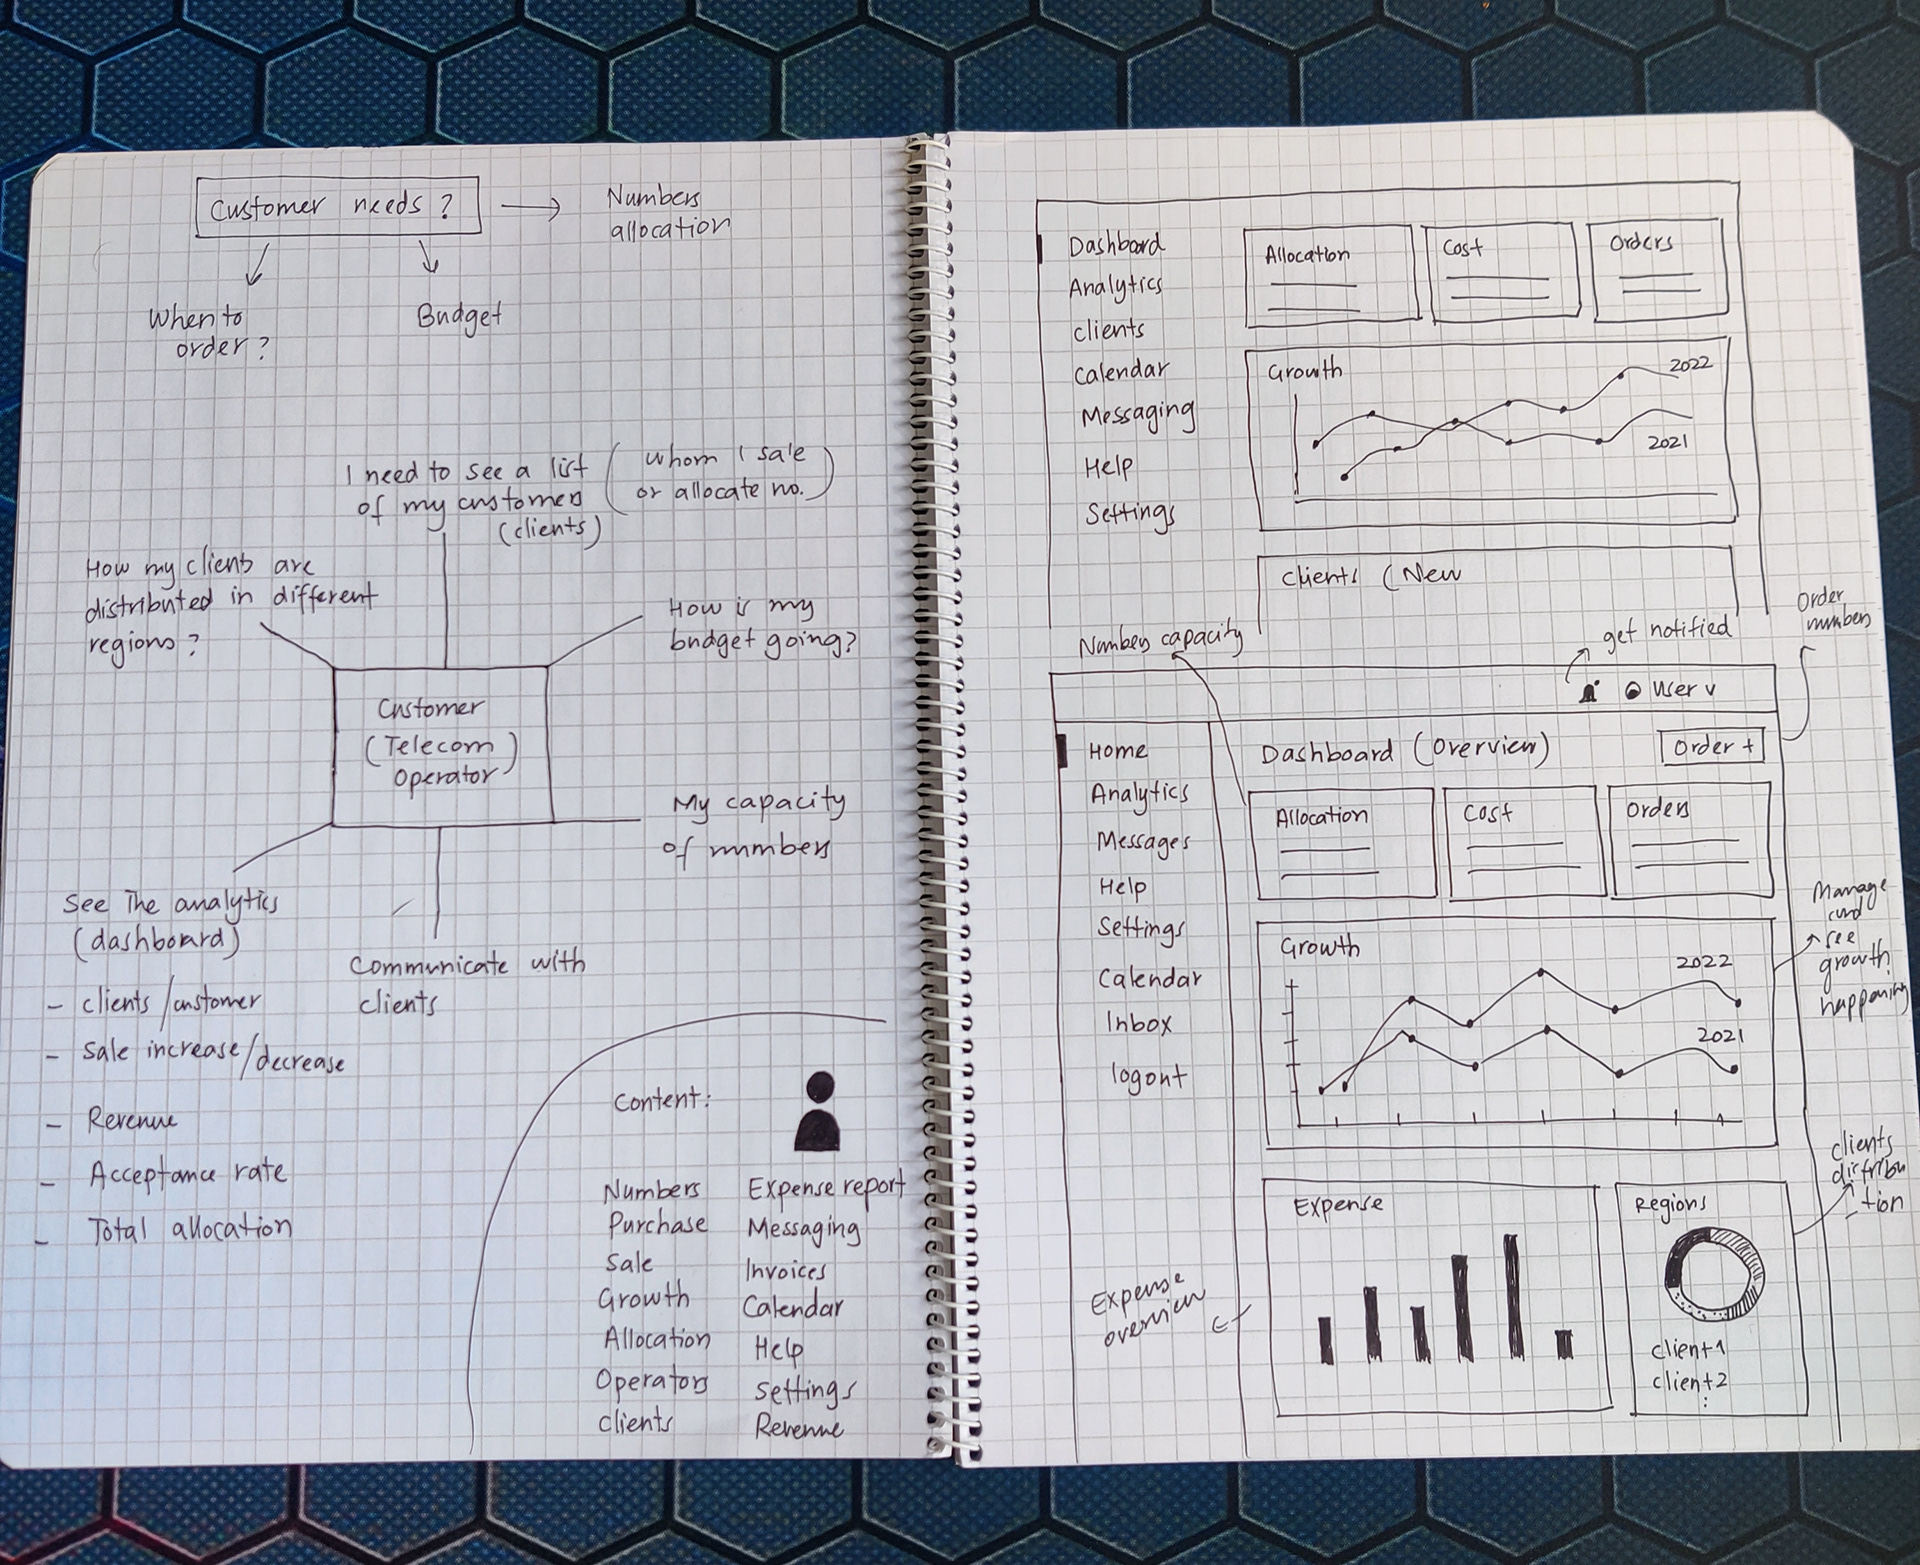 Customer needs?
Numbers
allocation
When to
order?
Budget
I need to see a list
of my customers
(clients)
(whom I sale
or allocate no.)
How my clients are
distributed in different
regions?
How is my
budget going?
Customer
(Telecom)
operator
My capacity
of numbers
See The analytics
(dashboard)
- clients/customer
- Sale increase/decrease
- Revenue
- Acceptance rate
- Total allocation
Communicate with
clients
Content:
Numbers
Purchase
Sale
Growth
Allocation
Operators
clients
Expense report
Messaging
Invoices
Calendar
Help
Settings
Revenue
Dashboard
Analytics
clients
Calendar
Messaging
Help
Settings
Allocation
Cost
Orders
Growth
2022
2021
Clients (New
Numbers capacity
get notified
Order
numbers
User v
Home
Analytics
Messages
Help
Settings
Calendar
Inbox
logout
Dashboard (Overview)
Order +
Allocation
Cost
Orders
Growth
2022
2021
Manage
and
see
growth
happening
Expense
Regions
client1
client2
clients
distribu
-tion
Expense
overview